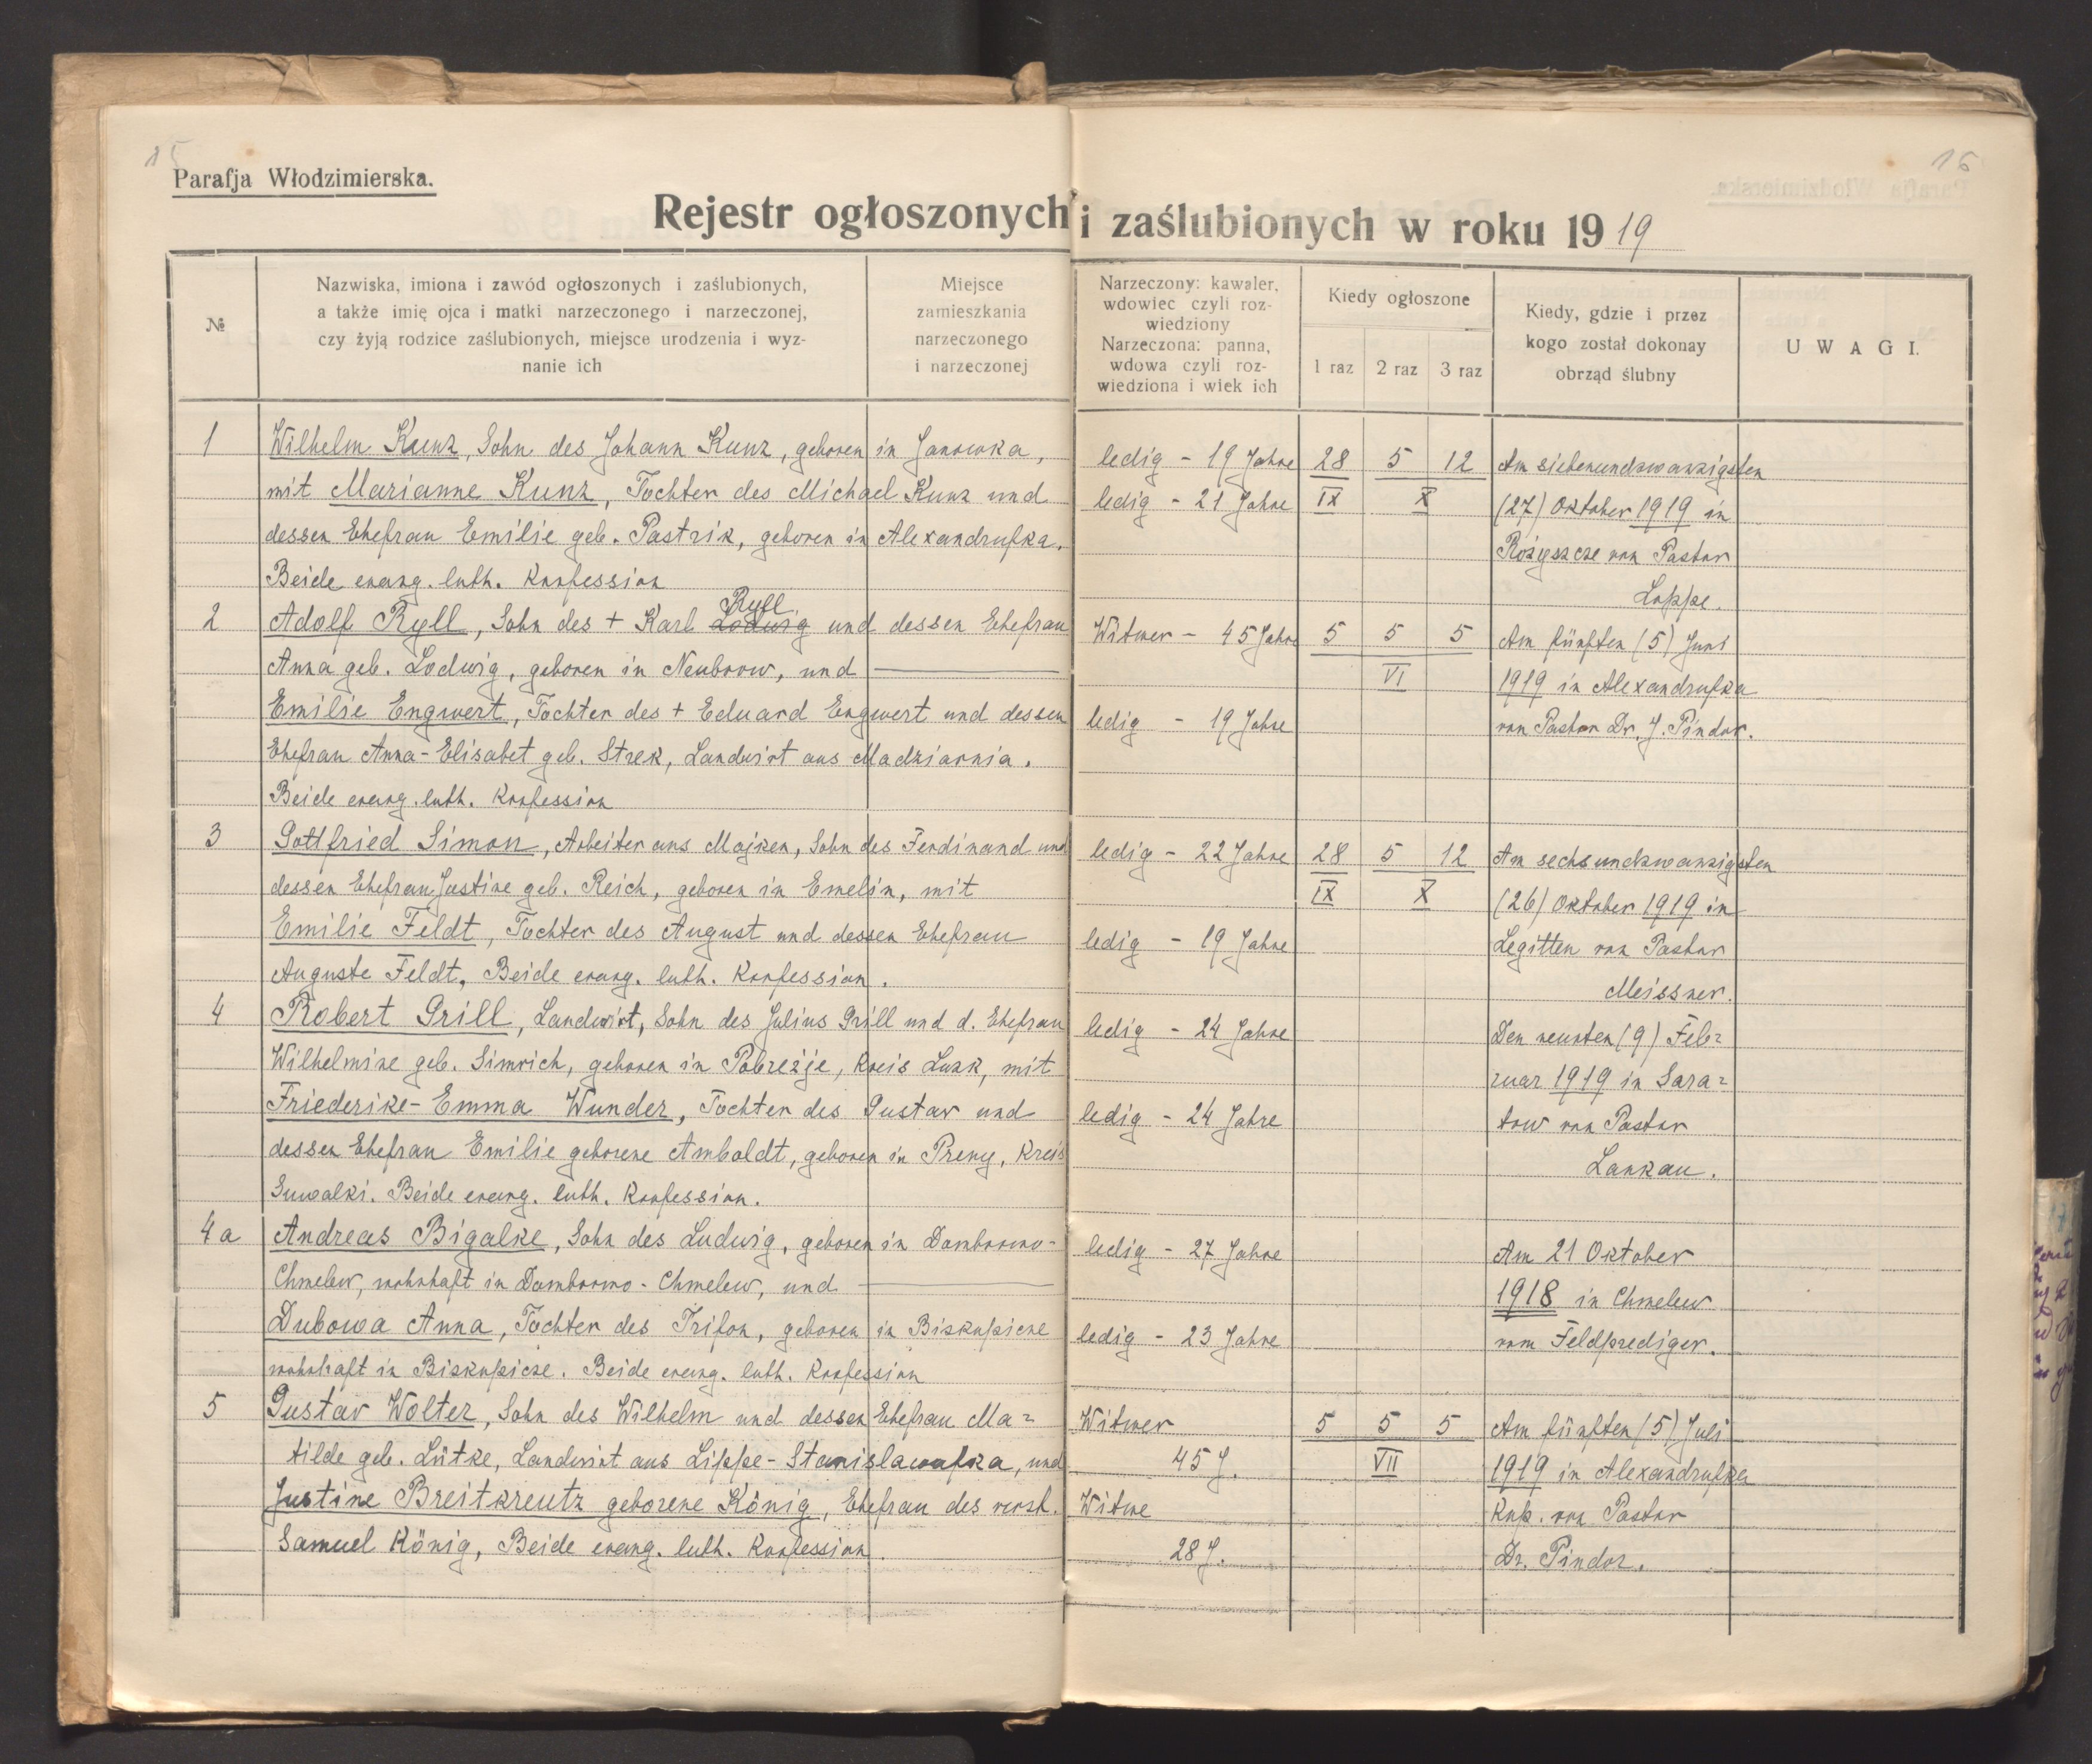 15
16
Parafja Włodzimierska.
Rejestr ogłoszonych i zaślubionych w roku 1919
№
Nazwiska, imiona i zawód ogłoszonych i zaślubionych,
a także imię ojca i matki narzeczonego i narzeczonej,
czy żyją rodzice zaślubionych, miejsce urodzenia i wyz-
nanie ich
Miejsce
zamieszkania
narzeczonego
i narzeczonej
Narzeczony: kawaler,
wdowiec czyli roz-
wiedziony
Narzeczona: panna,
wdowa czyli roz-
wiedziona i wiek ich
Kiedy ogłoszone
1 raz 2 raz 3 raz
Kiedy, gdzie i przez
kogo został dokonay
obrząd ślubny
UWAGI.
1 Wilhelm Kunz, Sohn des Johann Kunz, geboren in Janowka,
mit Marianne Kunz, Tochter des Michael Kunz und
dessen Ehefrau Emilie geb. Pastrik, geboren in Alexandrufka.
Beide evang. luth. Konfession
ledig - 19 Jahre
ledig - 21 Jahre
28 5 12
IX X
Am siebenundzwanzigsten
(27) Oktober 1919 in
Rożyszcze von Pastor
Loppe.
2 Adolf Ryll, Sohn des + Karl Lodwig Ryll und dessen Ehefrau
Anna geb. Lodwig, geboren in Neubrow, und
Emilie Engwert, Tochter des + Eduard Engwert und dessen
Ehefrau Anna-Elisabet geb. Strek, Landwirt aus Madziarnia.
Beide evang. luth. Konfession
Witwer - 45 Jahre
ledig - 19 Jahre
5 5 5
VI
Am fünften (5) Juni
1919 in Alexandrufka
von Pastor Dr. J. Pindor.
3 Gottfried Simon, Arbeiter aus Majken, Sohn des Ferdinand und
dessen Ehefrau Justine geb. Reich, geboren in Emelin, mit
Emilie Feldt, Tochter des August und dessen Ehefrau
Auguste Feldt, Beide evang. luth. Konfession.
ledig - 22 Jahre
ledig - 19 Jahre
28 5 12
IX X
Am sechsundzwanzigsten
(26) Oktober 1919 in
Legitten von Pastor
Meissner.
4 Robert Grill, Landwirt, Sohn des Julius Grill und d. Ehefrau
Wilhelmine geb. Simrich, geboren in Pobreżje, Kreis Luzk, mit
Friederike-Emma Wunder, Tochter des Gustav und
dessen Ehefrau Emilie geborene Amboldt, geboren in Preny, Kreis
Suwalki. Beide evang. luth. Konfession.
ledig - 24 Jahre
ledig - 24 Jahre
Den neunten (9) Feb=
ruar 1919 in Sara=
tow von Pastor
Lankau.
4a Andreas Bigalke, Sohn des Ludwig, geboren in Dombrowo-
Chmelew, wohnhaft in Dombrowo-Chmelew, und
Dubowa Anna, Tochter des Trifon, geboren in Biskupicze
wohnhaft in Biskupicze. Beide evang. luth. Konfession
ledig - 27 Jahre
ledig - 23 Jahre
Am 21 Oktober
1918 in Chmelew
vom Feldprediger.
5 Gustav Wolter, Sohn des Wilhelm und dessen Ehefrau Ma=
tilde geb. Lütke, Landwirt aus Lippe-Stanislawufka, und
Justine Breitkreutz geborene König, Ehefrau des verst.
Samuel König, Beide evang. luth. Konfession.
Witwer
45 J.
Witwe
28 J.
5 5 5
VII
Am fünften (5) Juli
1919 in Alexandrufka
Kup. von Pastor
Dr. Pindor.